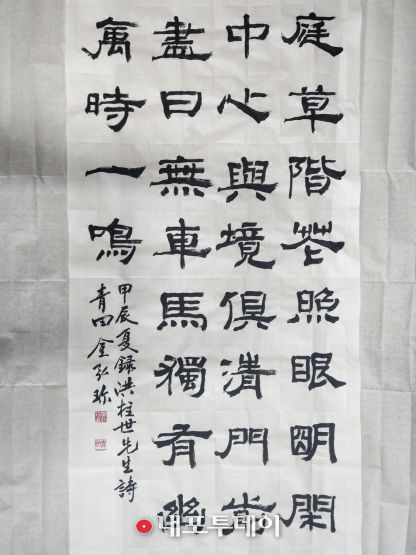 庭草階花照眼明閑
中心與境俱清門前
盡日無車馬獨有幽
禽時一鳴
甲辰夏錄洪柱世先生詩
青田金弘珎
내포투데이